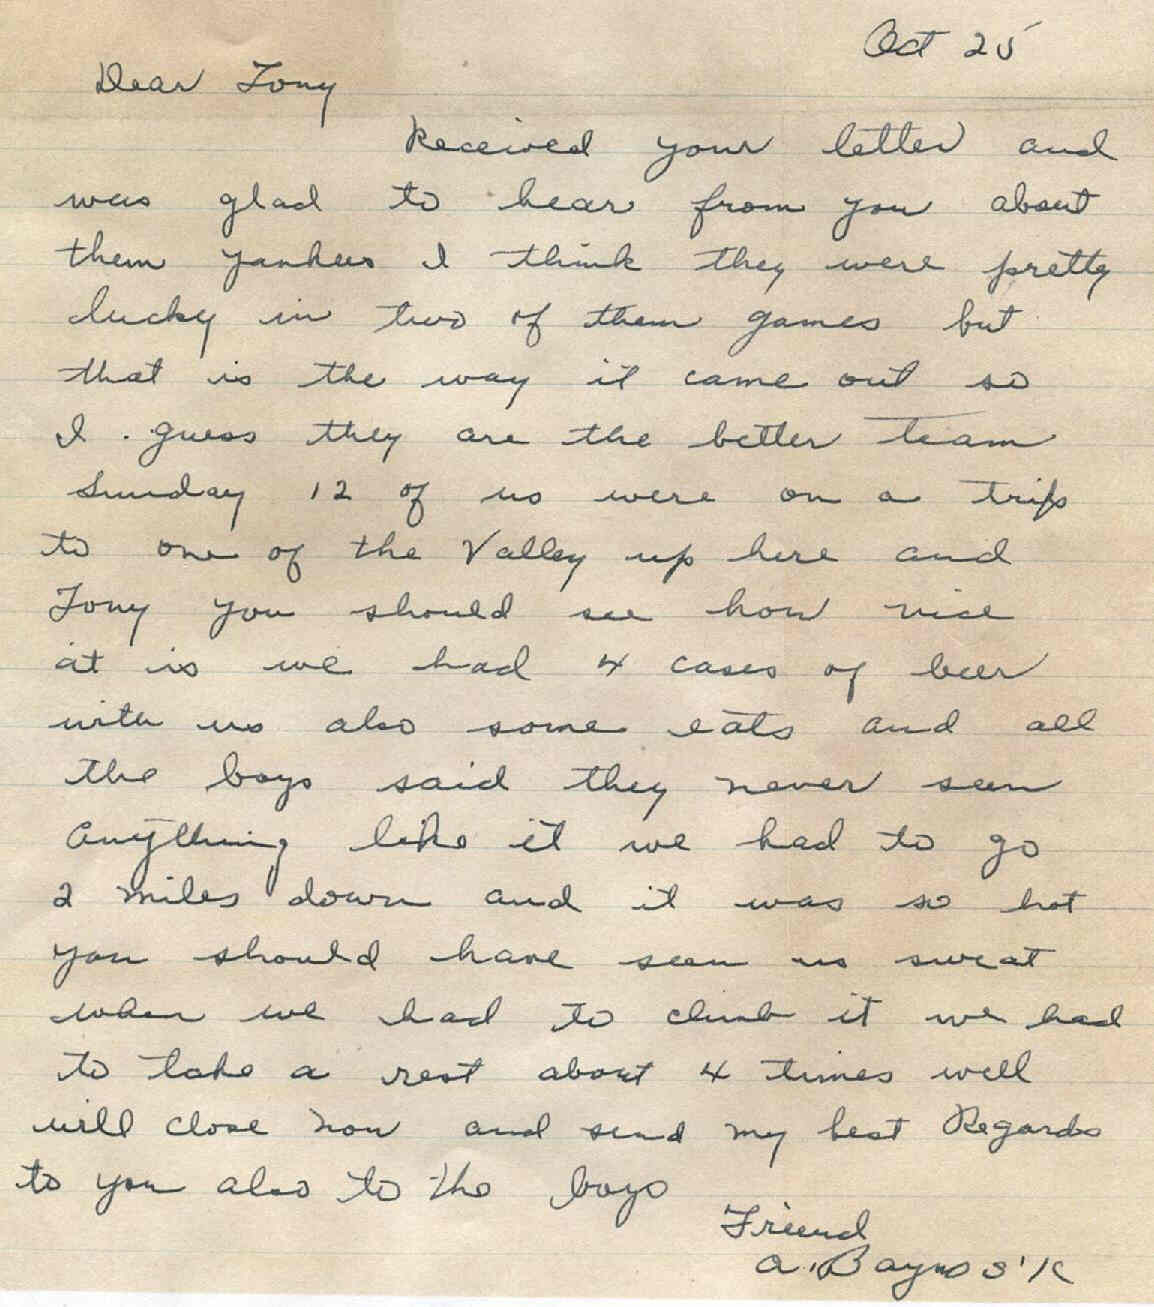 Oct 25
Dear Tony
Received your letter and
was glad to hear from you about
them Yankees I think they were pretty
lucky in two of them games but
that is the way it came out so
I guess they are the better team
Sunday 12 of us were on a trip
to one of the Valley up here and
Tony you should see how nice
it is we had 4 cases of beer
with us also some eats and all
the boys said they never seen
anything like it we had to go
2 miles down and it was so hot
you should have seen us sweat
when we had to climb it we had
to take a rest about 4 times well
will close now and send my best Regards
to you also to the boys
Friend
a.